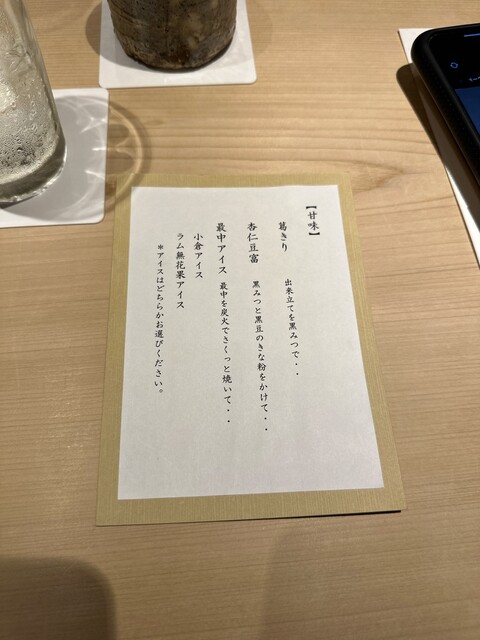 【甘味】
葛きり　出来立てを黒みつで・・
杏仁豆富　黒みつと黒豆のきな粉をかけて・・
最中アイス　最中を炭火でさくっと焼いて・・
小倉アイス
ラム無花果アイス
＊アイスはどちらかお選びください。